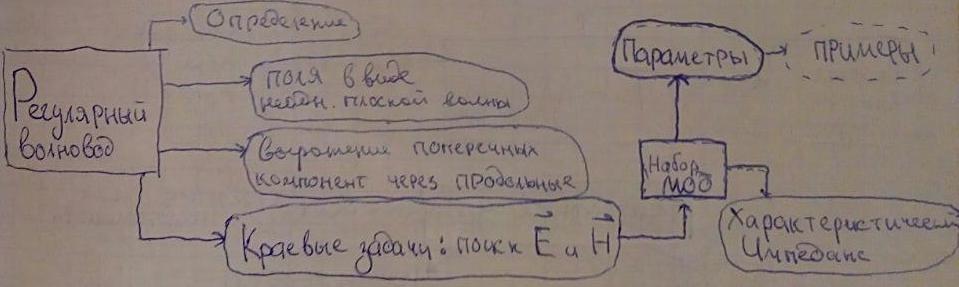 Определение
Регулярный
волновод
поля в виде
неодн. плоской волны
Выражение поперечных
компонент через продольные
Краевые задачи: поиск E и H
Набор
мод
Параметры
примеры
Характеристический
Импеданс